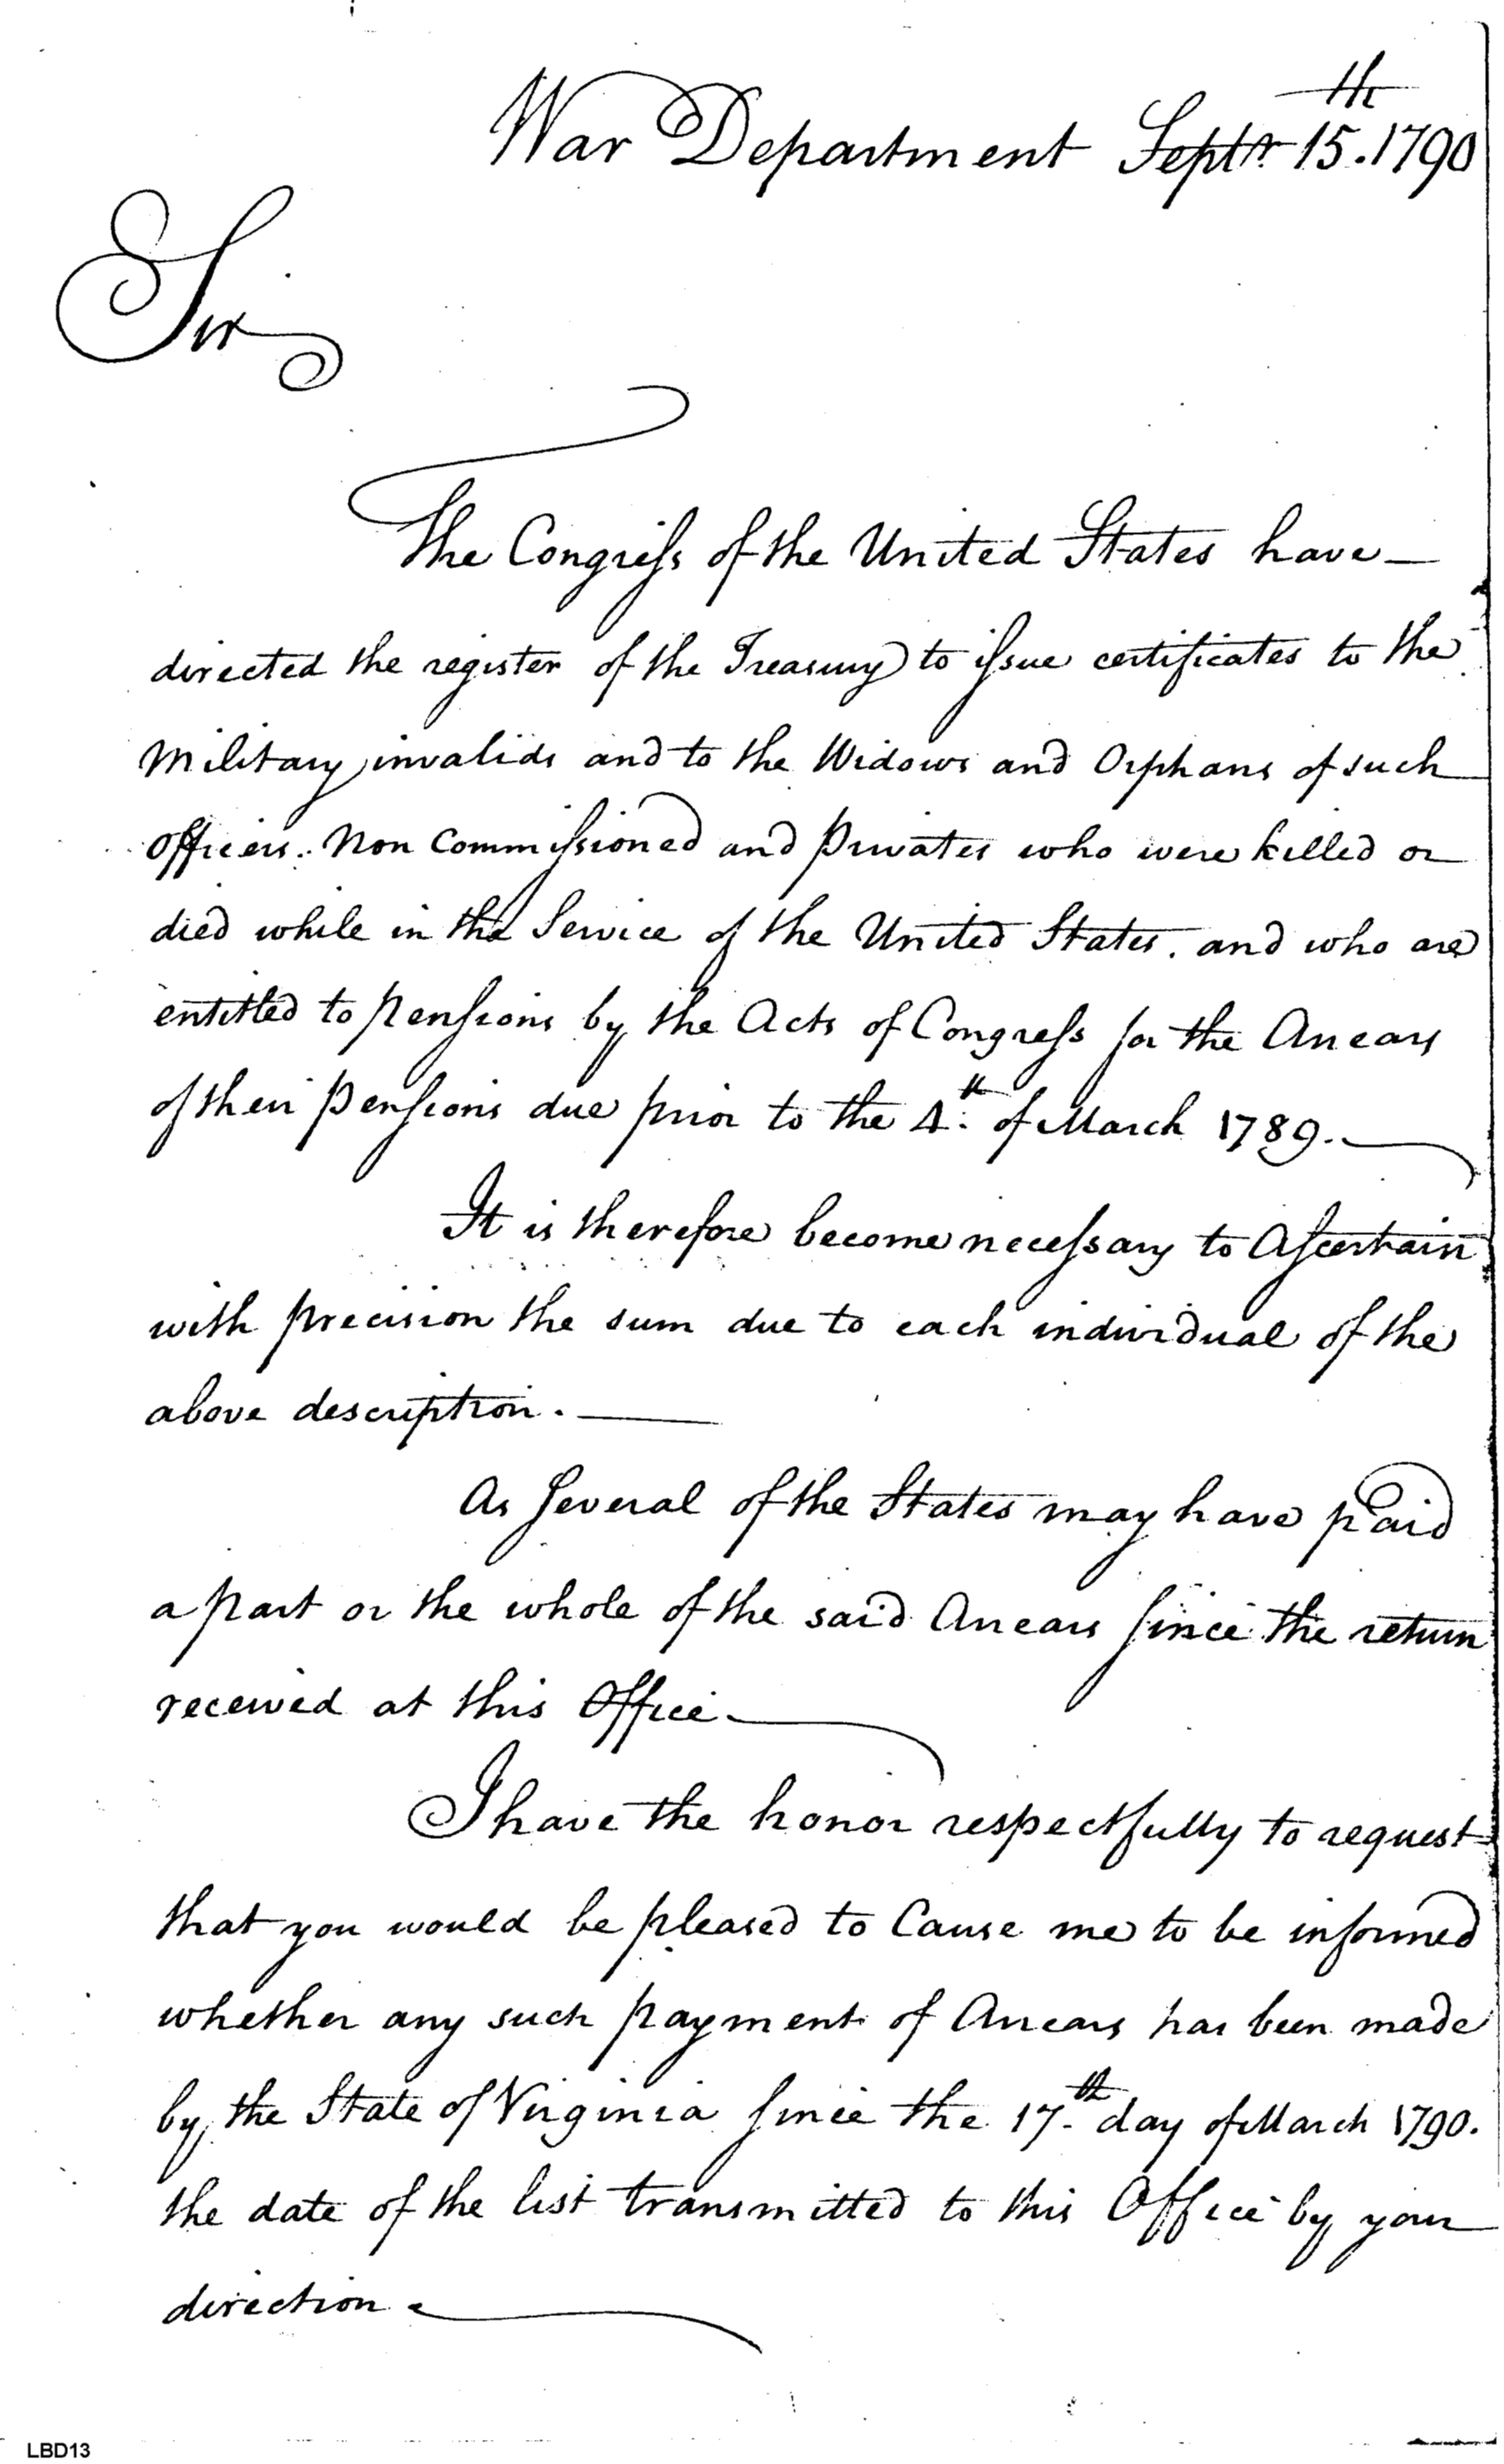 War Department Septr 15th. 1790
Sir
The Congress of the United States have
directed the register of the Treasury to issue certificates to the
Military invalids and to the Widows and Orphans of such
officers. Non Commissioned and privates who were killed or
died while in the Service of the United States. and who are
entitled to pensions by the Acts of Congress for the Arrears
of their pensions due prior to the 4th. of March 1789.
It is therefore become necessary to Ascertain
with precision the sum due to each individual of the
above description.
As Several of the States may have paid
a part or the whole of the said Arrears Since the return
received at this Office.
I have the honor respectfully to request
that you would be pleased to Cause me to be informed
whether any such payment of Arrears has been made
by the State of Virginia Since the 17th. day of March 1790.
the date of the list transmitted to this Office by your
direction.
LBD13